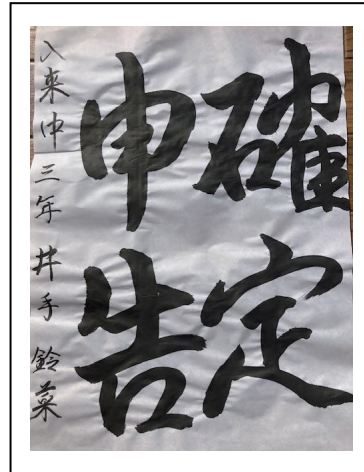 確定
申告
入来中 三年 井手 鈴菓